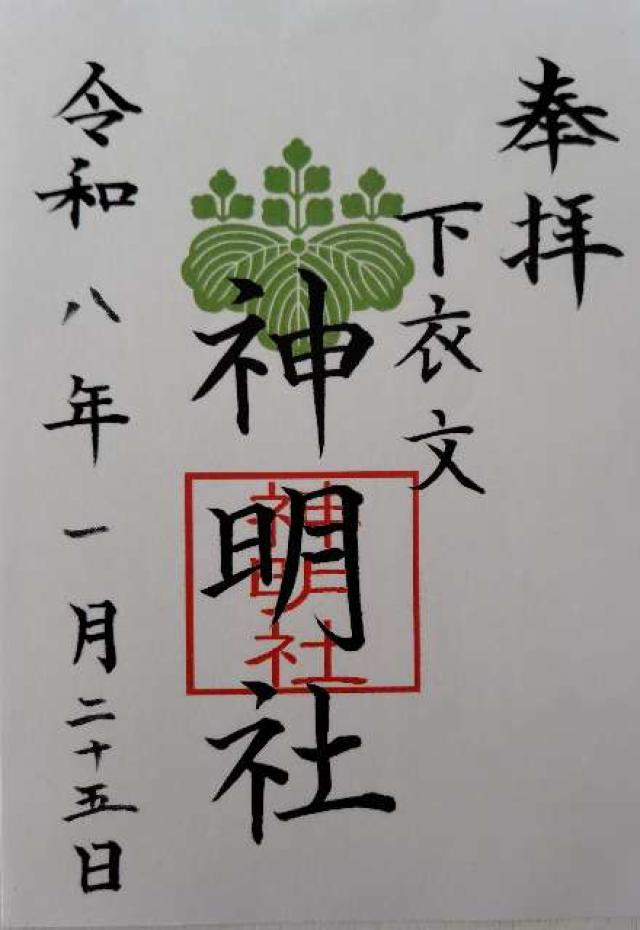 奉拝
下衣文
神明社
神明社
令和八年一月二十五日